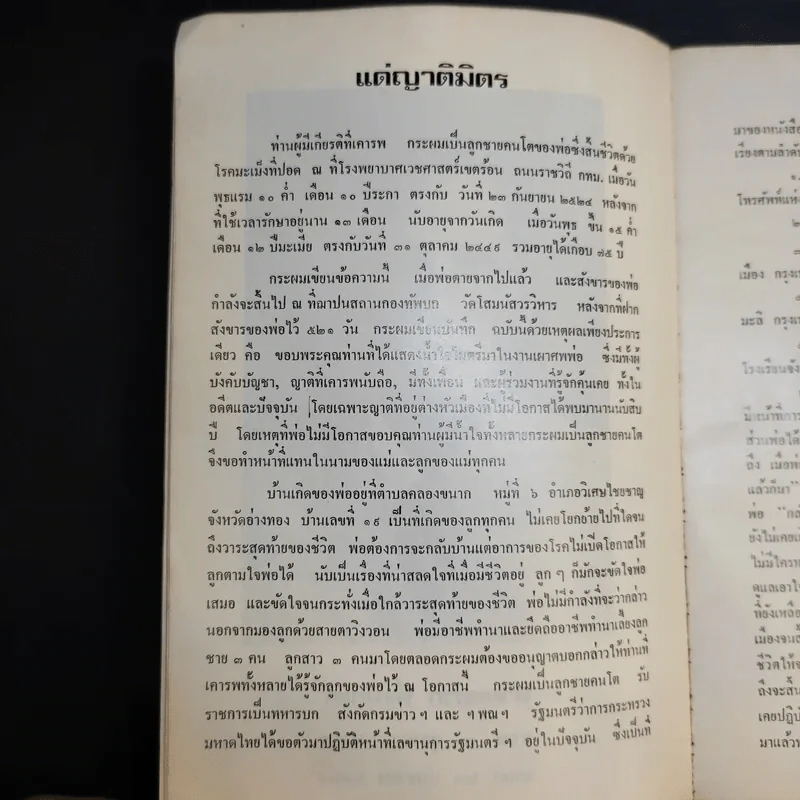 แด่ญาติมิตร
ท่านผู้มีเกียรติที่เคารพ กระผมเป็นลูกชายคนโตของพ่อซึ่งสิ้นชีวิตด้วย
โรคมะเม็งที่ปอด ณ ที่โรงพยาบาลเวชศาสตร์เขตร้อน ถนนราชวิถี กทม. เมื่อวัน
พุธแรม ๑๐ ค่ำ เดือน ๑๐ ปีระกา ตรงกับ วันที่ ๒๓ กันยายน ๒๕๒๔ หลังจาก
ที่ใช้เวลารักษาอยู่นาน ๑๓ เดือน นับอายุจากวันเกิด เมื่อวันพุธ ขึ้น ๑๕ ค่ำ
เดือน ๑๒ ปีมะเมีย ตรงกับวันที่ ๓๑ ตุลาคม ๒๔๔๙ รวมอายุได้เกือบ ๗๕ ปี
กระผมเขียนข้อความนี้ เมื่อพ่อตายจากไปแล้ว และสังขารของพ่อ
กำลังจะสิ้นไป ณ ที่ฌาปนสถานกองทัพบก วัดโสมนัสวรวิหาร หลังจากที่ฝาก
สังขารของพ่อไว้ ๕๒๑ วัน กระผมเขียนบันทึก ฉบับนี้ด้วยเหตุผลเพียงประการ
เดียว คือ ขอบพระคุณท่านที่ได้แสดงน้ำใจไมตรีมาในงานเผาศพพ่อ ซึ่งมีทั้งผู้
บังคับบัญชา, ญาติที่เคารพนับถือ, มีทั้งเพื่อน และผู้ร่วมงานที่รู้จักคุ้นเคย ทั้งใน
อดีตและปัจจุบัน โดยเฉพาะญาติที่อยู่ต่างหัวเมืองที่ไม่มีโอกาสได้พบมานานนับสิบ
ปี โดยเหตุที่พ่อไม่มีโอกาสขอบคุณท่านผู้มีน้ำใจทั้งหลายกระผมเป็นลูกชายคนโต
จึงขอทำหน้าที่แทนในนามของแม่และลูกของแม่ทุกคน
บ้านเกิดของพ่ออยู่ที่ตำบลคลองขนาก หมู่ที่ ๖ อำเภอวิเศษไชยชาญ
จังหวัดอ่างทอง บ้านเลขที่ ๑๙ เป็นที่เกิดของลูกทุกคน ไม่เคยโยกย้ายไปที่ใดจน
ถึงวาระสุดท้ายของชีวิต พ่อต้องการจะกลับบ้านแต่อาการของโรคไม่เปิดโอกาสให้
ลูกตามใจพ่อได้ นับเป็นเรื่องที่น่าสลดใจที่เมื่อมีชีวิตอยู่ ลูก ๆ ก็มักจะขัดใจพ่อ
เสมอ และขัดใจจนกระทั่งเมื่อใกล้วาระสุดท้ายของชีวิต พ่อไม่มีกำลังที่จะว่ากล่าว
นอกจากมองลูกด้วยสายตาวิงวอน พ่อมีอาชีพทำนาและยึดถืออาชีพทำนาเลี้ยงลูก
ชาย ๓ คน ลูกสาว ๓ คนมาโดยตลอดกระผมต้องขออนุญาตบอกกล่าวให้ท่านที่
เคารพทั้งหลายได้รู้จักลูกของพ่อไว้ ณ โอกาสนี้ กระผมเป็นลูกชายคนโต รับ
ราชการเป็นทหารบก สังกัดกรมข่าว ฯ และ ฯ พณ ฯ รัฐมนตรีว่าการกระทรวง
มหาดไทยได้ขอตัวมาปฏิบัติหน้าที่เลขานุการรัฐมนตรี ฯ อยู่ในปัจจุบัน ซึ่งเป็นที่
มาของหนังสือ
เรียงตามลำดับ
โทรศัพท์แห่ง
เมือง กรุงเท
มะลิ กรุงเท
โรงเรียนจัง
มีหน้าที่การ
ส่วนพ่อได้
ถึง เมื่อพ่อ
แล้วก็มา
พ่อ "กลั
ยังไม่เคยเ
ไม่มีใครท
ดูแลเอาใ
ที่ยังเหลือ
เมืองจนส
ชีวิตให้จ
ถึงจะสิ้น
เคยปฏิบั
มาแล้วท